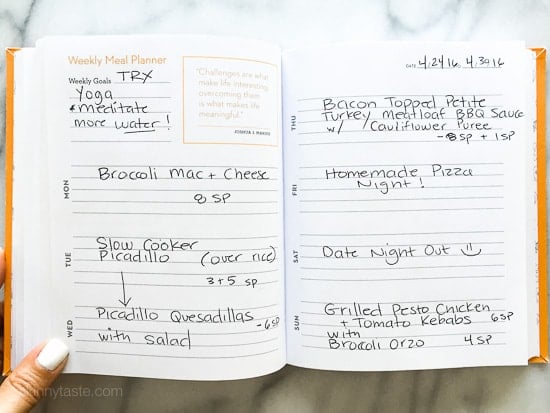 Weekly Meal Planner
Weekly Goals TRX
Yoga
+ meditate
more water!
"Challenges are what
make life interesting,
overcoming them
is what makes life
meaningful."
JOSHUA J. MARINE
MON
Broccoli Mac + Cheese
8 SP
TUE
Slow Cooker
Picadillo (over rice)
3+5 SP
WED
Picadillo Quesadillas
-6 SP
with salad
DATE 4.24.16, 4.30.16
THU
Bacon Topped Petite
Turkey Meatloaf BBQ Sauce
w/ Cauliflower Puree
-8 SP + 1 SP
FRI
Homemade Pizza
Night!
SAT
Date Night Out
SUN
Grilled Pesto Chicken
+ Tomato Kebabs 6 SP
with
Broccoli Orzo 4 SP
skinnytaste.com